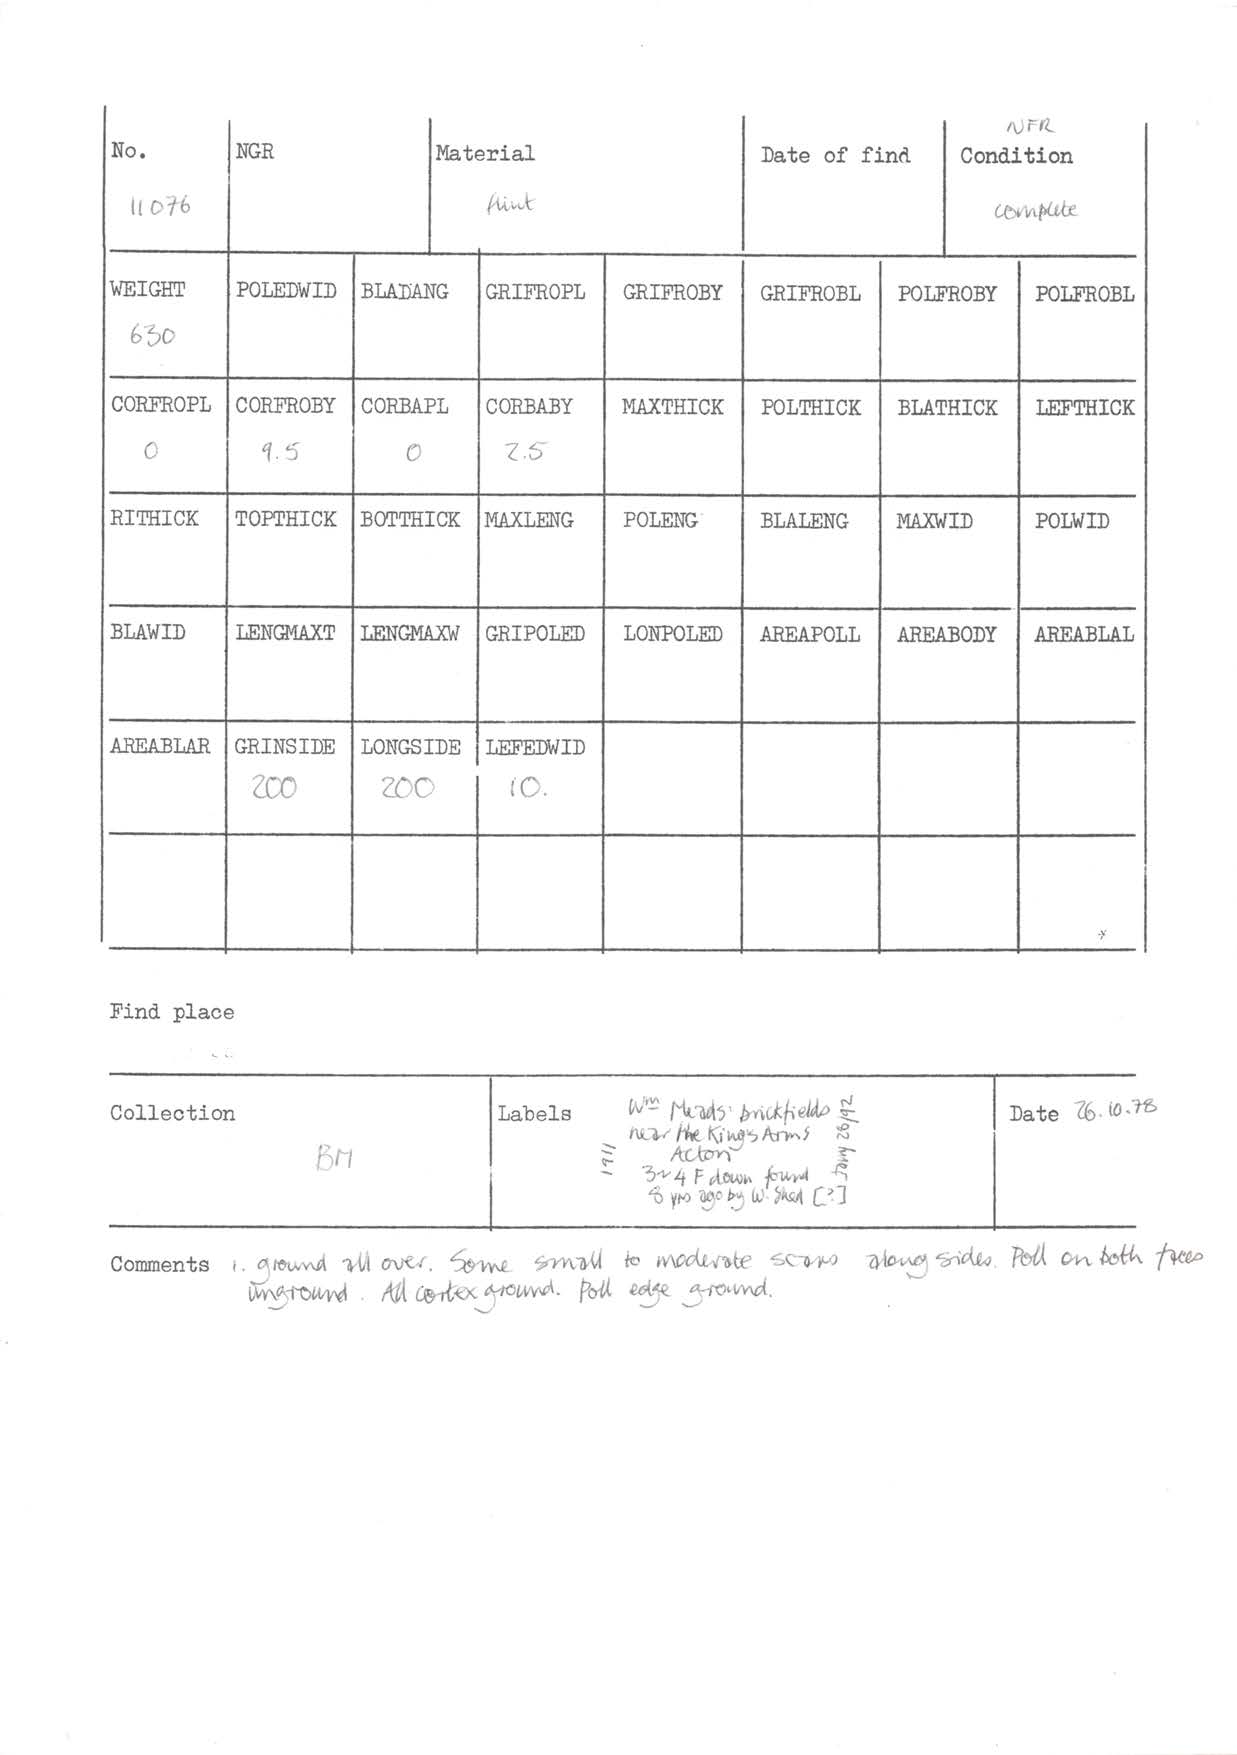 NFR
No. NGR Material Date of find Condition
11076 flint complete
WEIGHT POLEDWID BLADANG GRIFROPL GRIFROBY GRIFROBL POLFROBY POLFROBL
630
CORFROPL CORFROBY CORBAPL CORBABY MAXTHICK POLTHICK BLATHICK LEFTHICK
0 9.5 0 2.5
RITHICK TOPTHICK BOTTHICK MAXLENG POLENG BLALENG MAXWID POLWID
BLAWID LENGMAXT LENGMAXW GRIPOLED LONPOLED AREAPOLL AREABODY AREABLAL
AREABLAR GRINSIDE LONGSIDE LEFEDWID
200 200 10.
Find place
Collection
BM
Labels
Wm Meads' brickfields
near the King's Arms
Acton
3~4 F down found
8 yrs ago by W. Shed [?]
1911
Date 26.10.78
Comments 1. ground all over. Some small to moderate scars along sides. Poll on both faces
unground. All cortex ground. Poll edge ground.